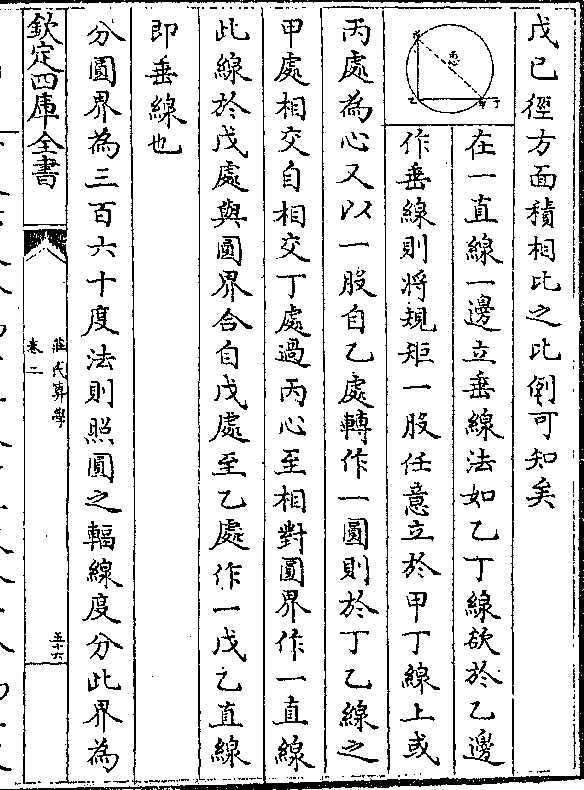 戊己徑方面積相比之比例可知矣
在一直線一邊立垂線法如乙丁線欲於乙邊
作垂線則將規矩一股任意立於甲丁線上或
丙處為心又以一股自乙處轉作一圓則於丁乙線之
甲處相交自相交丁處過丙心至相對圓界作一直線
此線於戊處與圓界合自戊處至乙處作一戊乙直線
即垂線也
分圓界為三百六十度法則照圓之輻線度分此界為
欽定四庫全書
莊氏算學
卷二
五十六